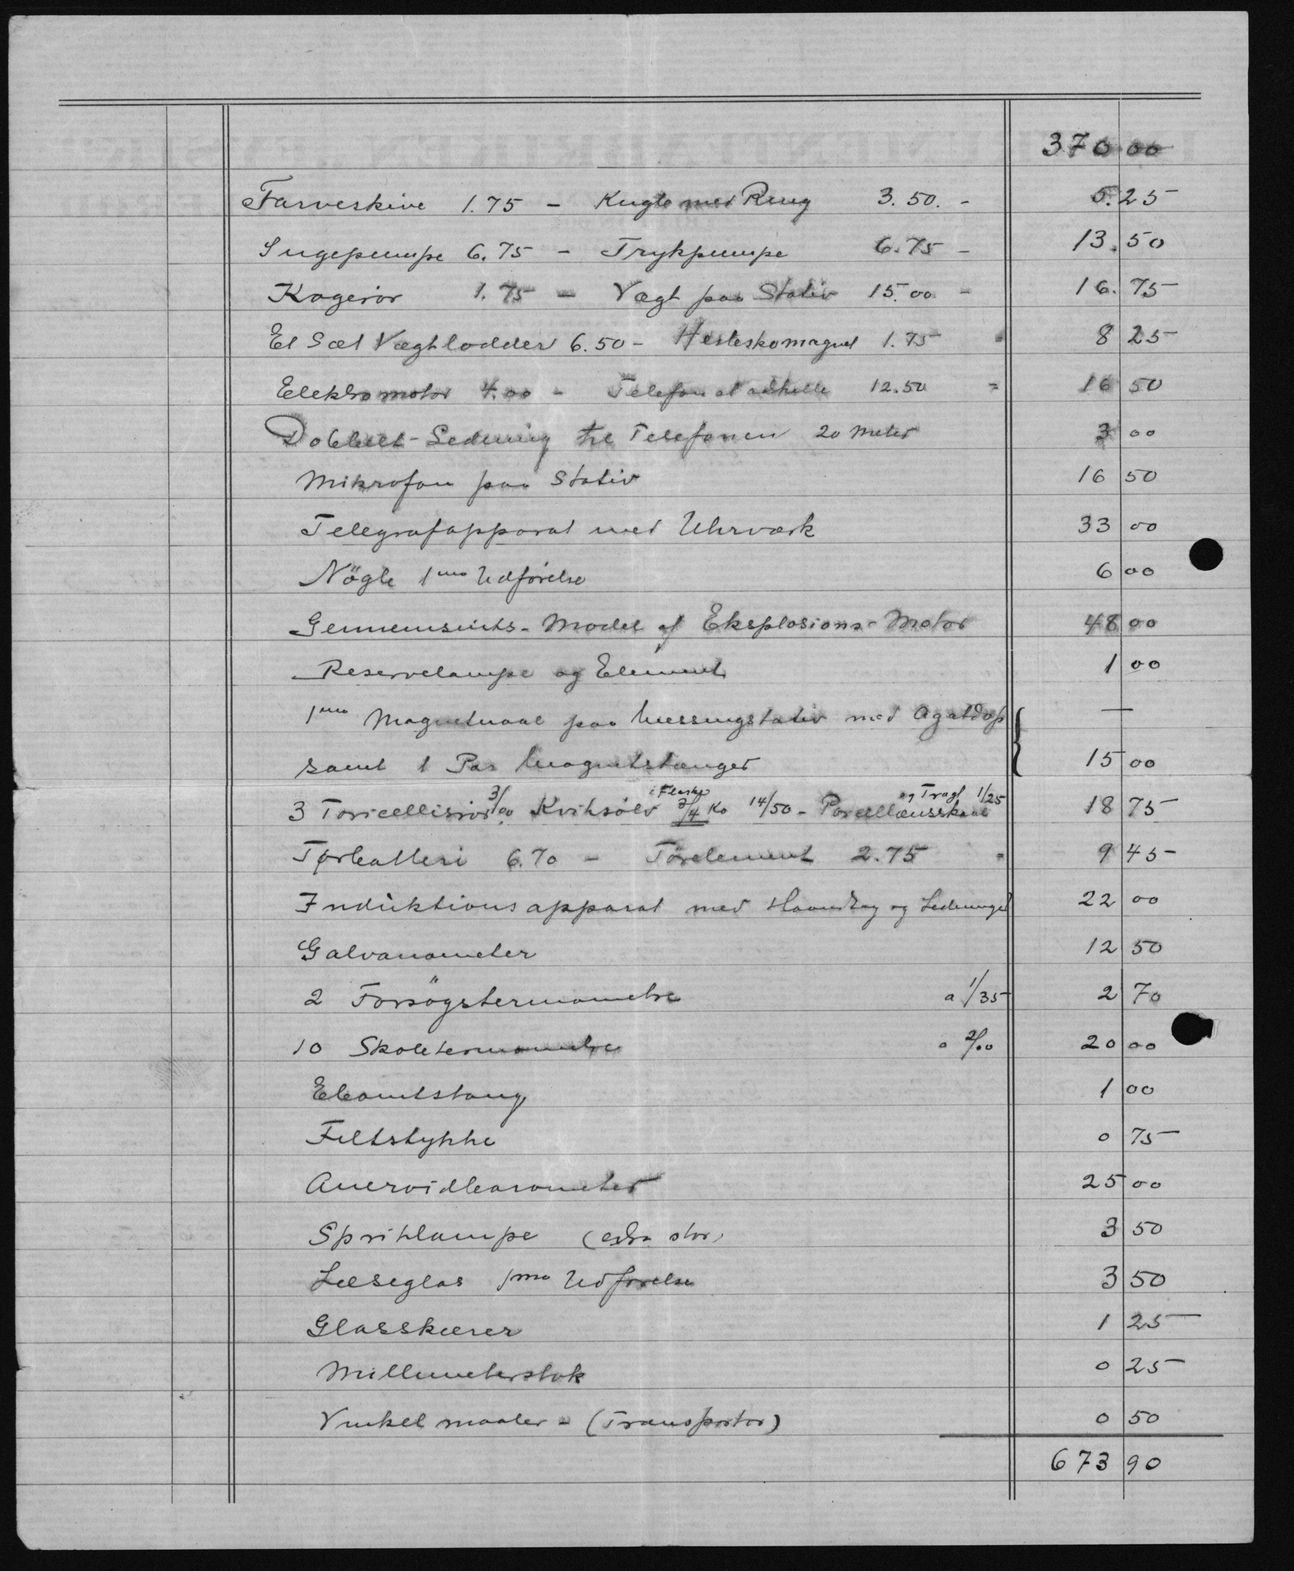 370 00
Farveskive 1.75 – Kugle med Ring 3.50. – 5.25
Sugepumpe 6.75 – Trykpumpe 6.75 – 13.50
Kogerör 1.75 – Vægt paa Stativ 15.00 – 16.75
Et Sæt Vægtlodder 6.50 – Hesteskomagnet 1.75 8 25
Elektromotor 4.00 – Telefon 12.50 = 16 50
Dobbelt-Ledning til Telefonen 20 Meter 3 00
Mikrofon paa Stativ 16 50
Telegrafapparat med Uhrværk 33 00
Nögle 1ma Udförelse 6 00
Gennemsnits-Model af Eksplosions-Motor 48 00
Reservelampe og Element 1 00
1ma Magnetnaal paa Messingstativ med Agatdop —
samt 1 Par Magnetstænger 15 00
i Flaske og Tragt 1/25
3 Toricellisrör 3/00 Kviksölv 3/4 Ko 14/50 – Porcellænsskaal 18 75
Tørbatteri 6.70 – Törelement 2.75 9 45
Induktionsapparat med Haandtag og Ledninger 22 00
Galvanometer 12 50
2 Forsögstermometre a 1/35 2 70
10 Skoletermometre a 2/00 20 00
Ebonitstang 1 00
Filtstykke 0 75
Aneroidbarometer 25 00
Spritlampe (extra stor) 3 50
Læseglas 1ma Udförelse 3 50
Glasskærer 1 25
Millimeterstok 0 25
Vinkelmaaler – (Transportør) 0 50
673 90